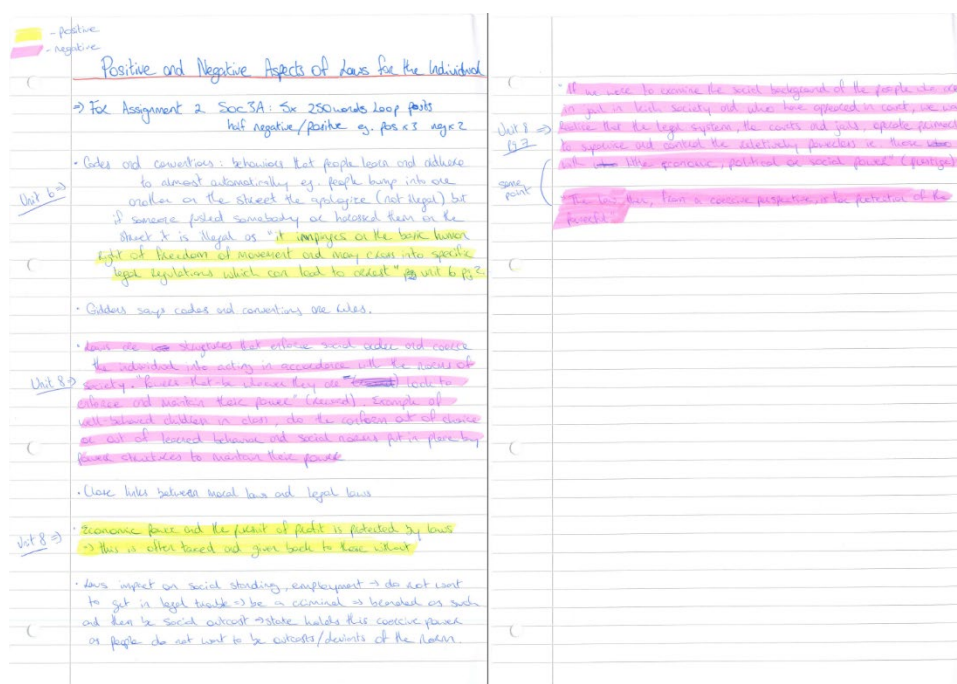 - positive
- negative
Positive and Negative Aspects of Laws for the Individual
=> For Assignment 2 Soc3A: 5x 250 words Loop posts
half negative/positive eg. pos x 3 neg x 2
Unit 6 =>
• Codes and conventions: behaviours that people learn and adhere
to almost automatically eg. people bump into one
another on the street the apologize (not illegal) but
if someone pushed somebody or harassed them on the
street it is illegal as "it impinges on the basic human
right of freedom of movement and may cross into specific
legal regulations which can lead to arrest" unit 6 pg 2.
• Giddens says codes and conventions are rules.
Unit 8 =>
• Laws are structures that enforce social order and coerce
the individual into acting in accordance with the norms of
society. "Powers that be whoever they are look to
enforce and maintain their power" . Example of
well behaved children in class, do the conform out of choice
or out of learned behavior and social norms put in place by
power structures to maintain their power
• Close links between moral laws and legal laws
Unit 8 =>
• Economic power and the pursuit of profit is protected by laws
-> this is often taxed and given back to those without
• Laws impact on social standing, employment -> do not want
to get in legal trouble => be a criminal => as such
and then be social outcast -> state holds this coercive power
as people do not want to be outcasts/deviants of the norm.
Unit 8 =>
pg 3
same
point
• If we were to examine the social background of the people who are
in in society and who have appeared in court, we wou
realise that the legal system, the courts and jails, operate
to supervise and control the relatively powerless ie those
with little economic, political or social power" (prestige)
The law then, from a coercive perspective, is for protection of the
powerful.